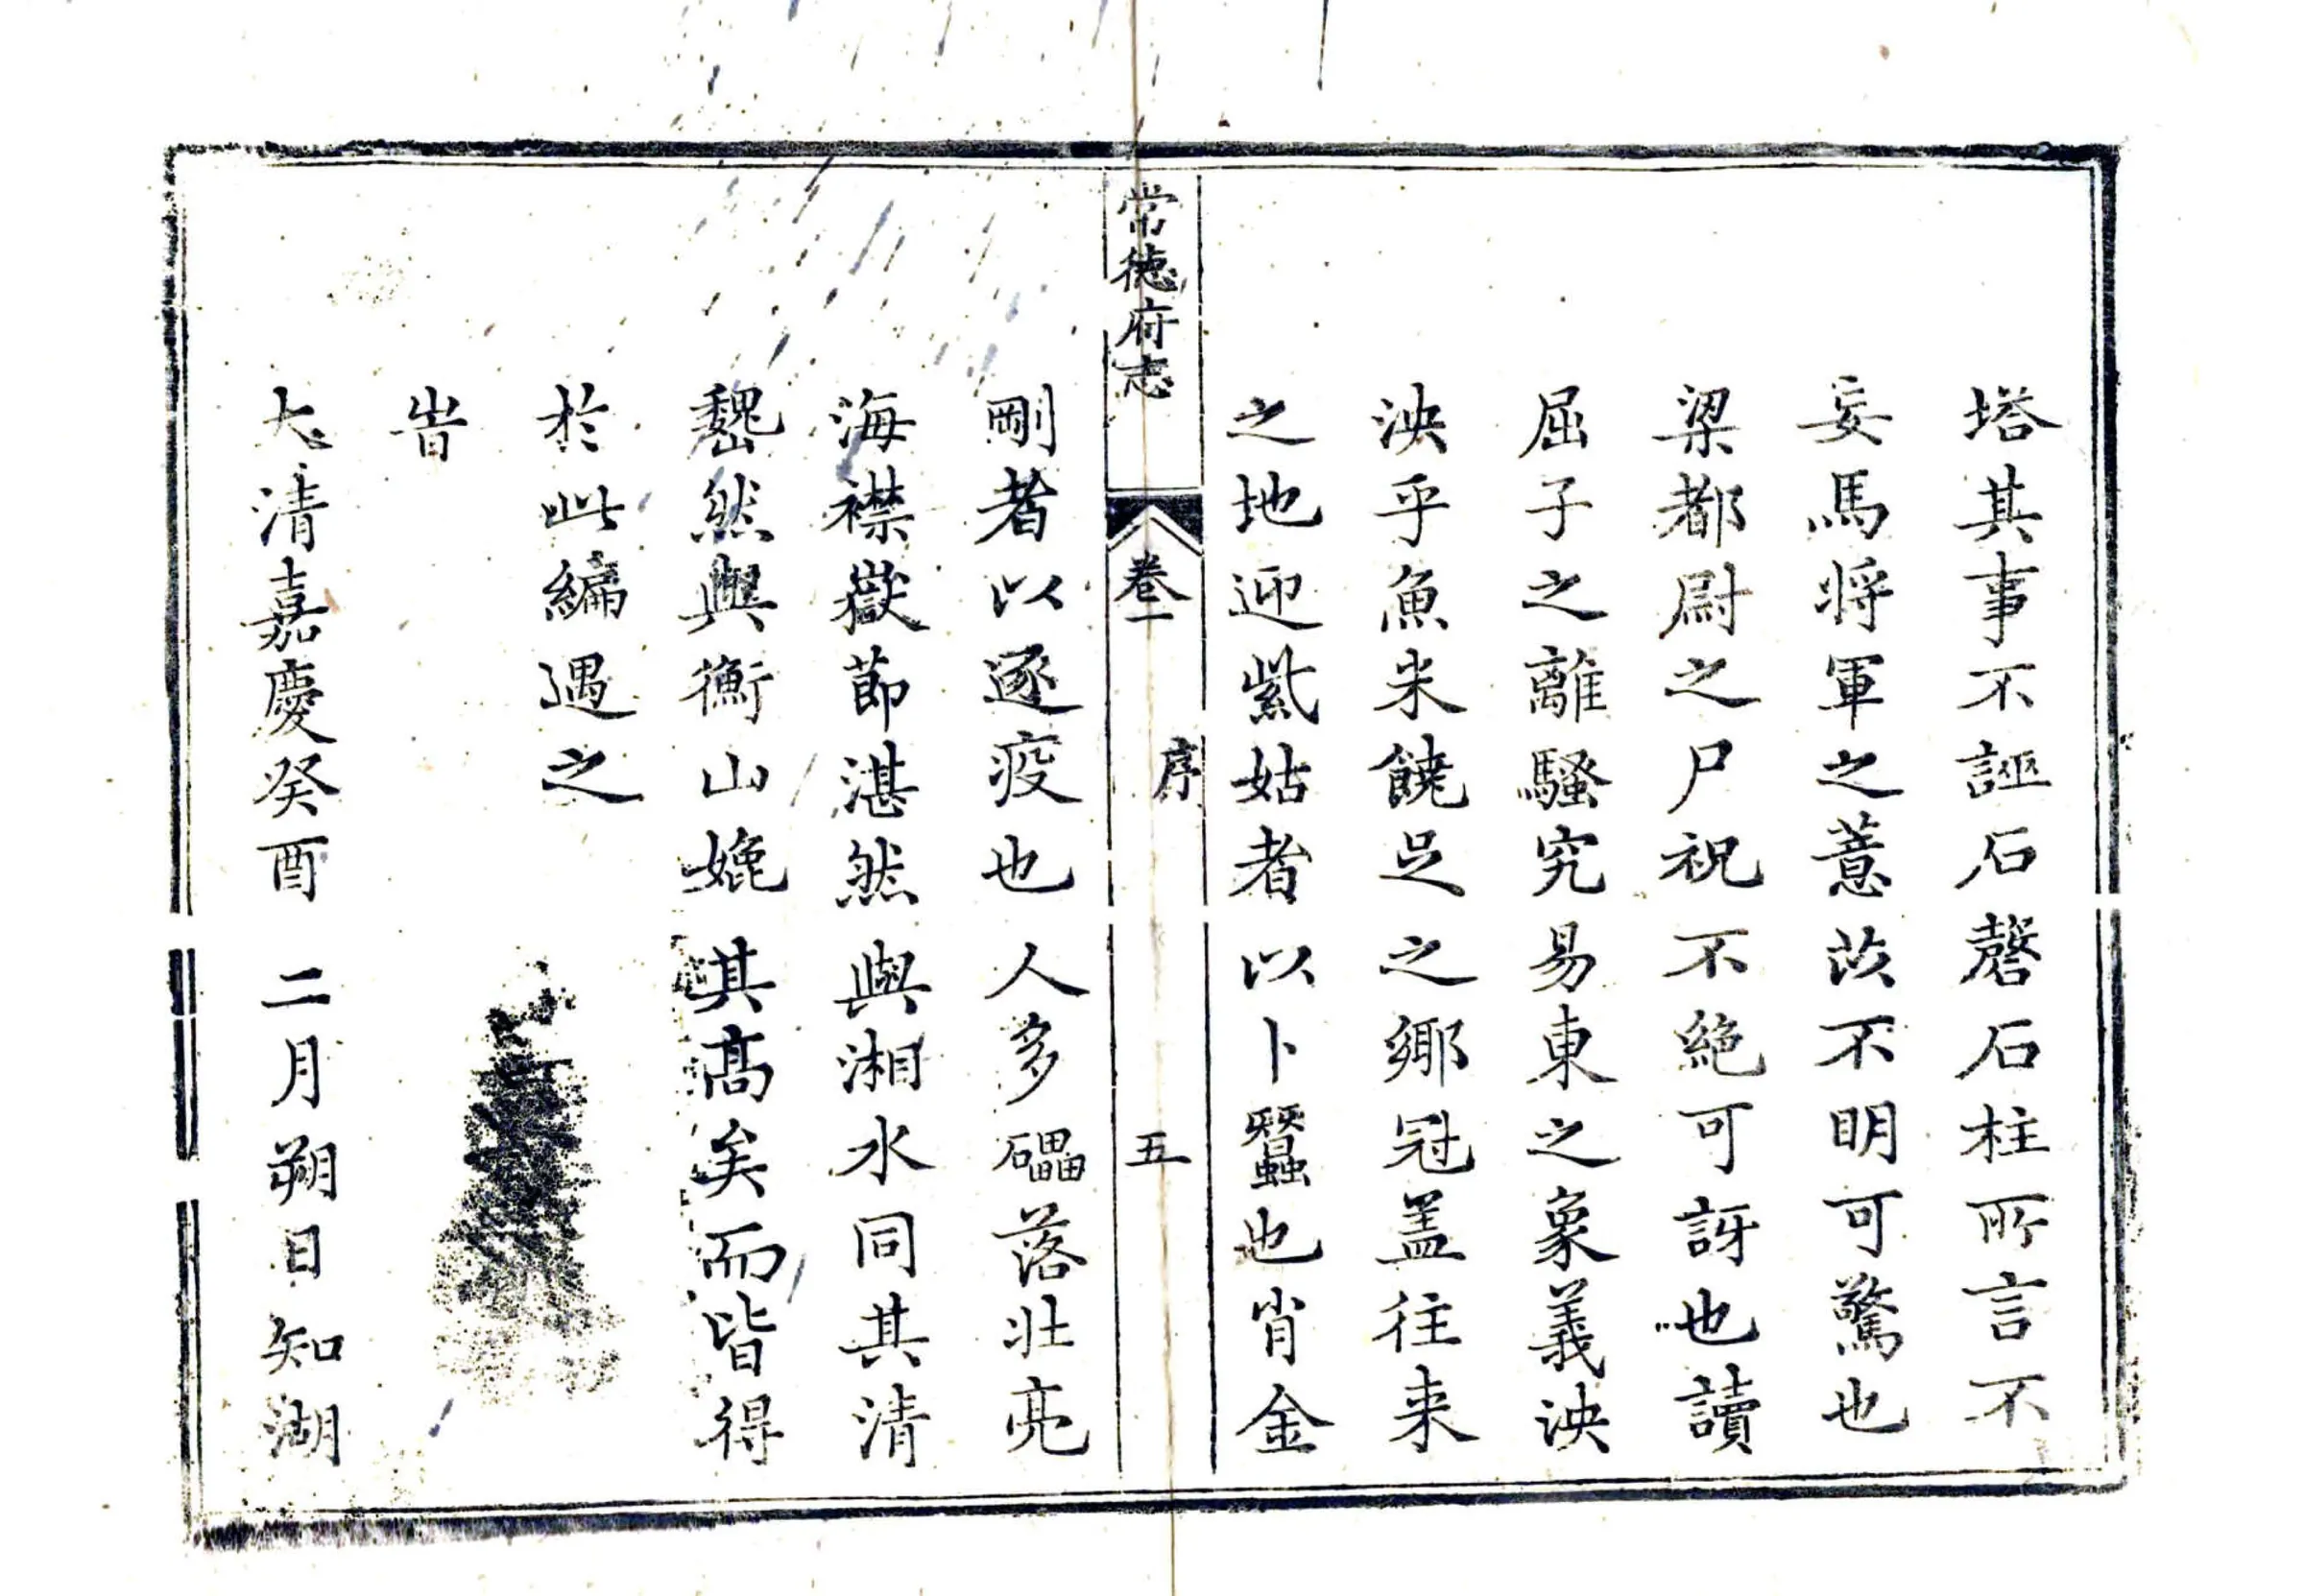 塔其事不誣石磬石柱所言不
妄馬將軍之薏苡不明可驚也
梁都尉之尸祝不絶可訝也讀
屈子之離騷究易東之象義泱
泱乎魚米饒足之鄉冠盖往来
之地迎紫姑者以卜蠶也肖金
常德府志
卷一
序
五
剛者以逐疫也人多礧落壯亮
海襟嶽節湛然與湘水同其清
巍然與衡山媲其高矣而皆得
於此編遇之
旹
大清嘉慶癸酉二月朔日知湖